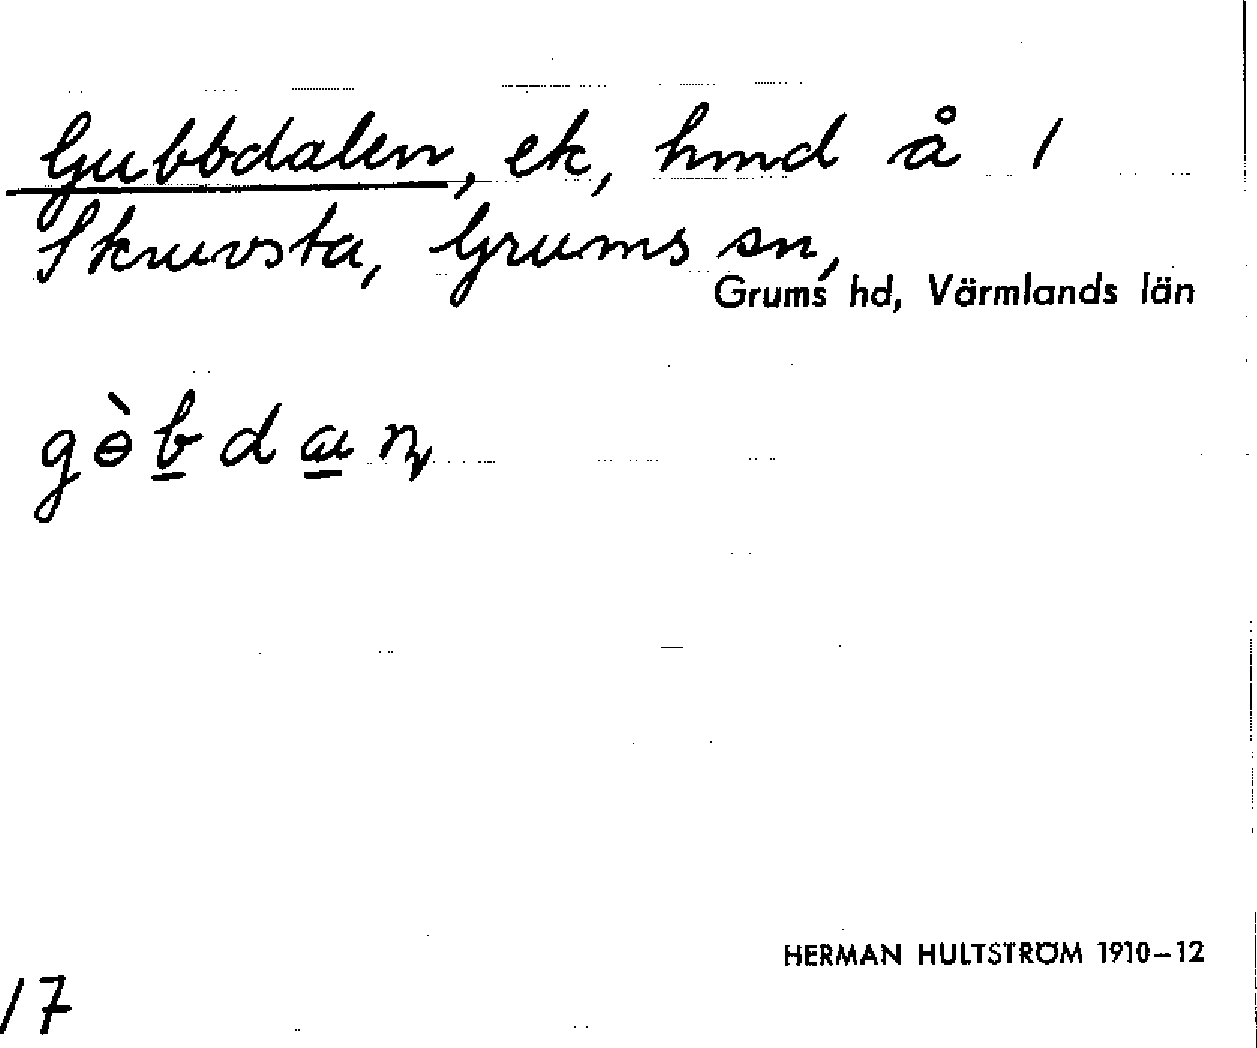 Gubbdalen, ek, hmd å /
Skruvsta, Grums sn,
Grums hd, Värmlands län
gɵ̀b̲da̲n̥
HERMAN HULTSTRÖM 1910–12
17